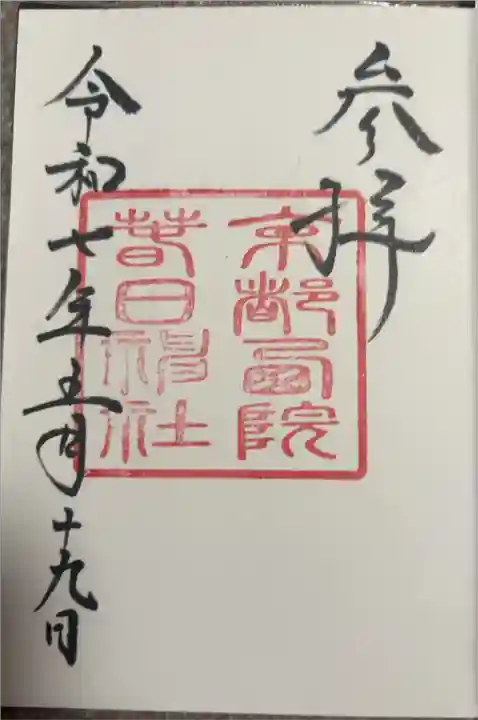 参拝
京都西院
春日神社
令和七年五月十九日